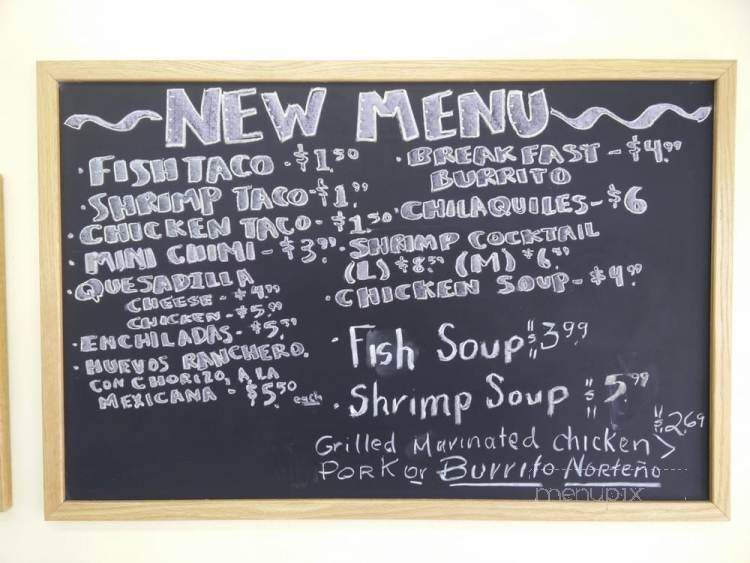 NEW MENU
· FISH TACO - $1.50
· SHRIMP TACO - $1.99
· CHICKEN TACO - $1.50
· MINI CHIMI - $3.99
· QUESADILLA
CHEESE - $4.99
CHICKEN - $5.99
· ENCHILADAS - $5.50
· HUEVOS RANCHERO,
CON CHORIZO, A LA
MEXICANA - $5.50 each
· BREAKFAST - $4.99
BURRITO
· CHILAQUILES - $6
· SHRIMP COCKTAIL
(L) $8.99 (M) $6.99
· CHICKEN SOUP - $4.99
· Fish Soup $3.99
· Shrimp Soup $5.99
$2.69
Grilled Marinated chicken >
PORK or Burrito Norteño
menupix